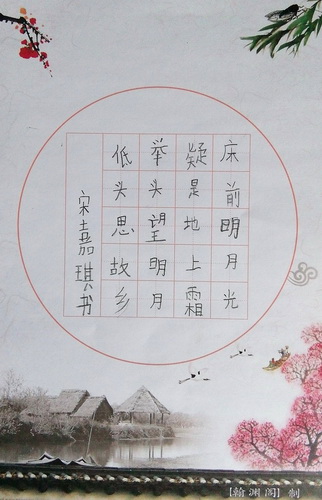 床前明月光
疑是地上霜
举头望明月
低头思故乡
宋嘉琪书
[翰渊阁]制